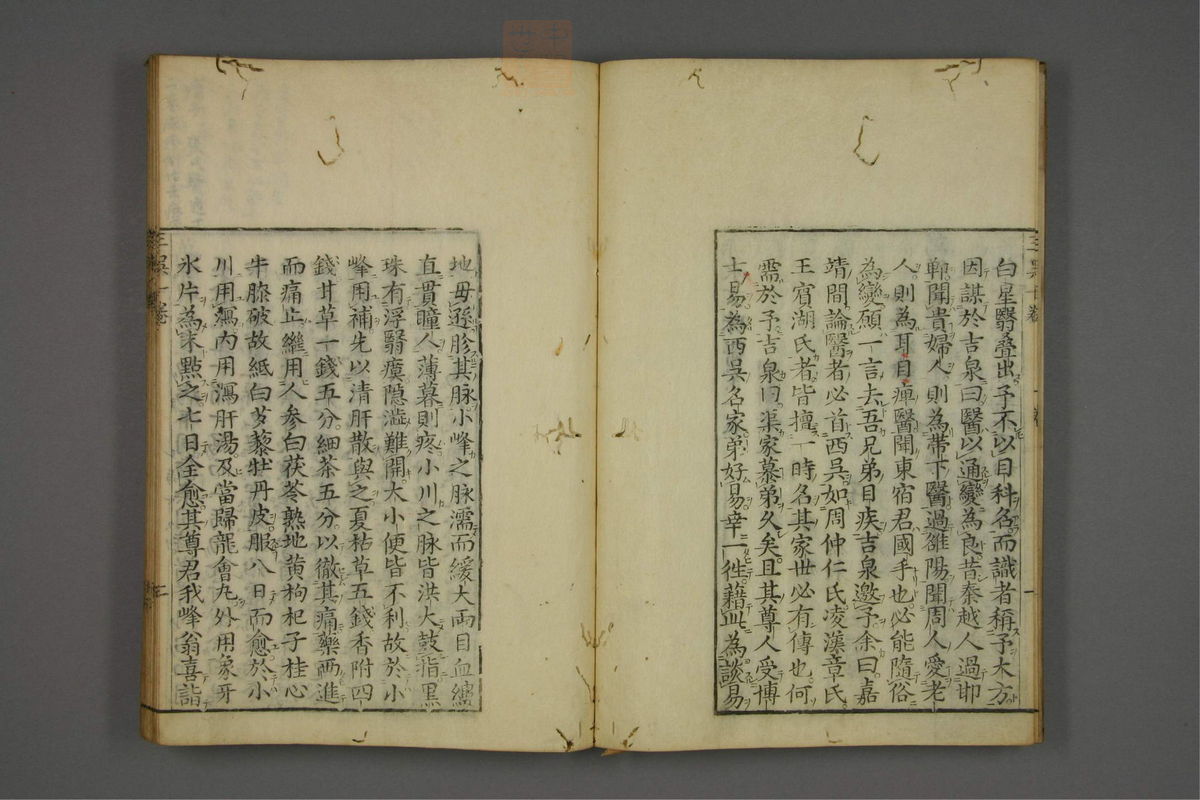 白星翳疊出予不以目科名而識者稱予大方
因謀於吉泉曰醫以通變為良昔秦越人過邯
鄲聞貴婦人則為帶下醫過雒陽聞周人愛老
人則為耳目痺醫聞東宿君國手也必能隨俗
為變願一言去吾兄弟目疾吉泉邀予余曰嘉
靖間論醫者必首西吳如周仲仁氏凌漢章氏
王賓湖氏者皆擅一時名其家世必有傳也何
需於予吉泉曰渠家慕弟久矣且其尊人受博
士易為西吳名家弟好易幸一徃藉此為談易
地毋遜胗其脉小峰之脉濡而緩大兩目血縷
直貫瞳人薄暮則疼小川之脉皆洪大鼓指黑
珠有浮翳瘼隱澁難開大小便皆不利故於小
峰用補先以清肝散與之夏枯草五錢香附四
錢甘草一錢五分細茶五分以徹其痛藥兩進
而痛止繼用人參白茯苓熟地黄枸杞子桂心
牛膝破故紙白芍藜牡丹皮服八日而愈於小
川用瀉內用瀉肝湯及當歸龍會丸外用象牙
氷片為末點之七日全愈其尊君我峰翁喜詣